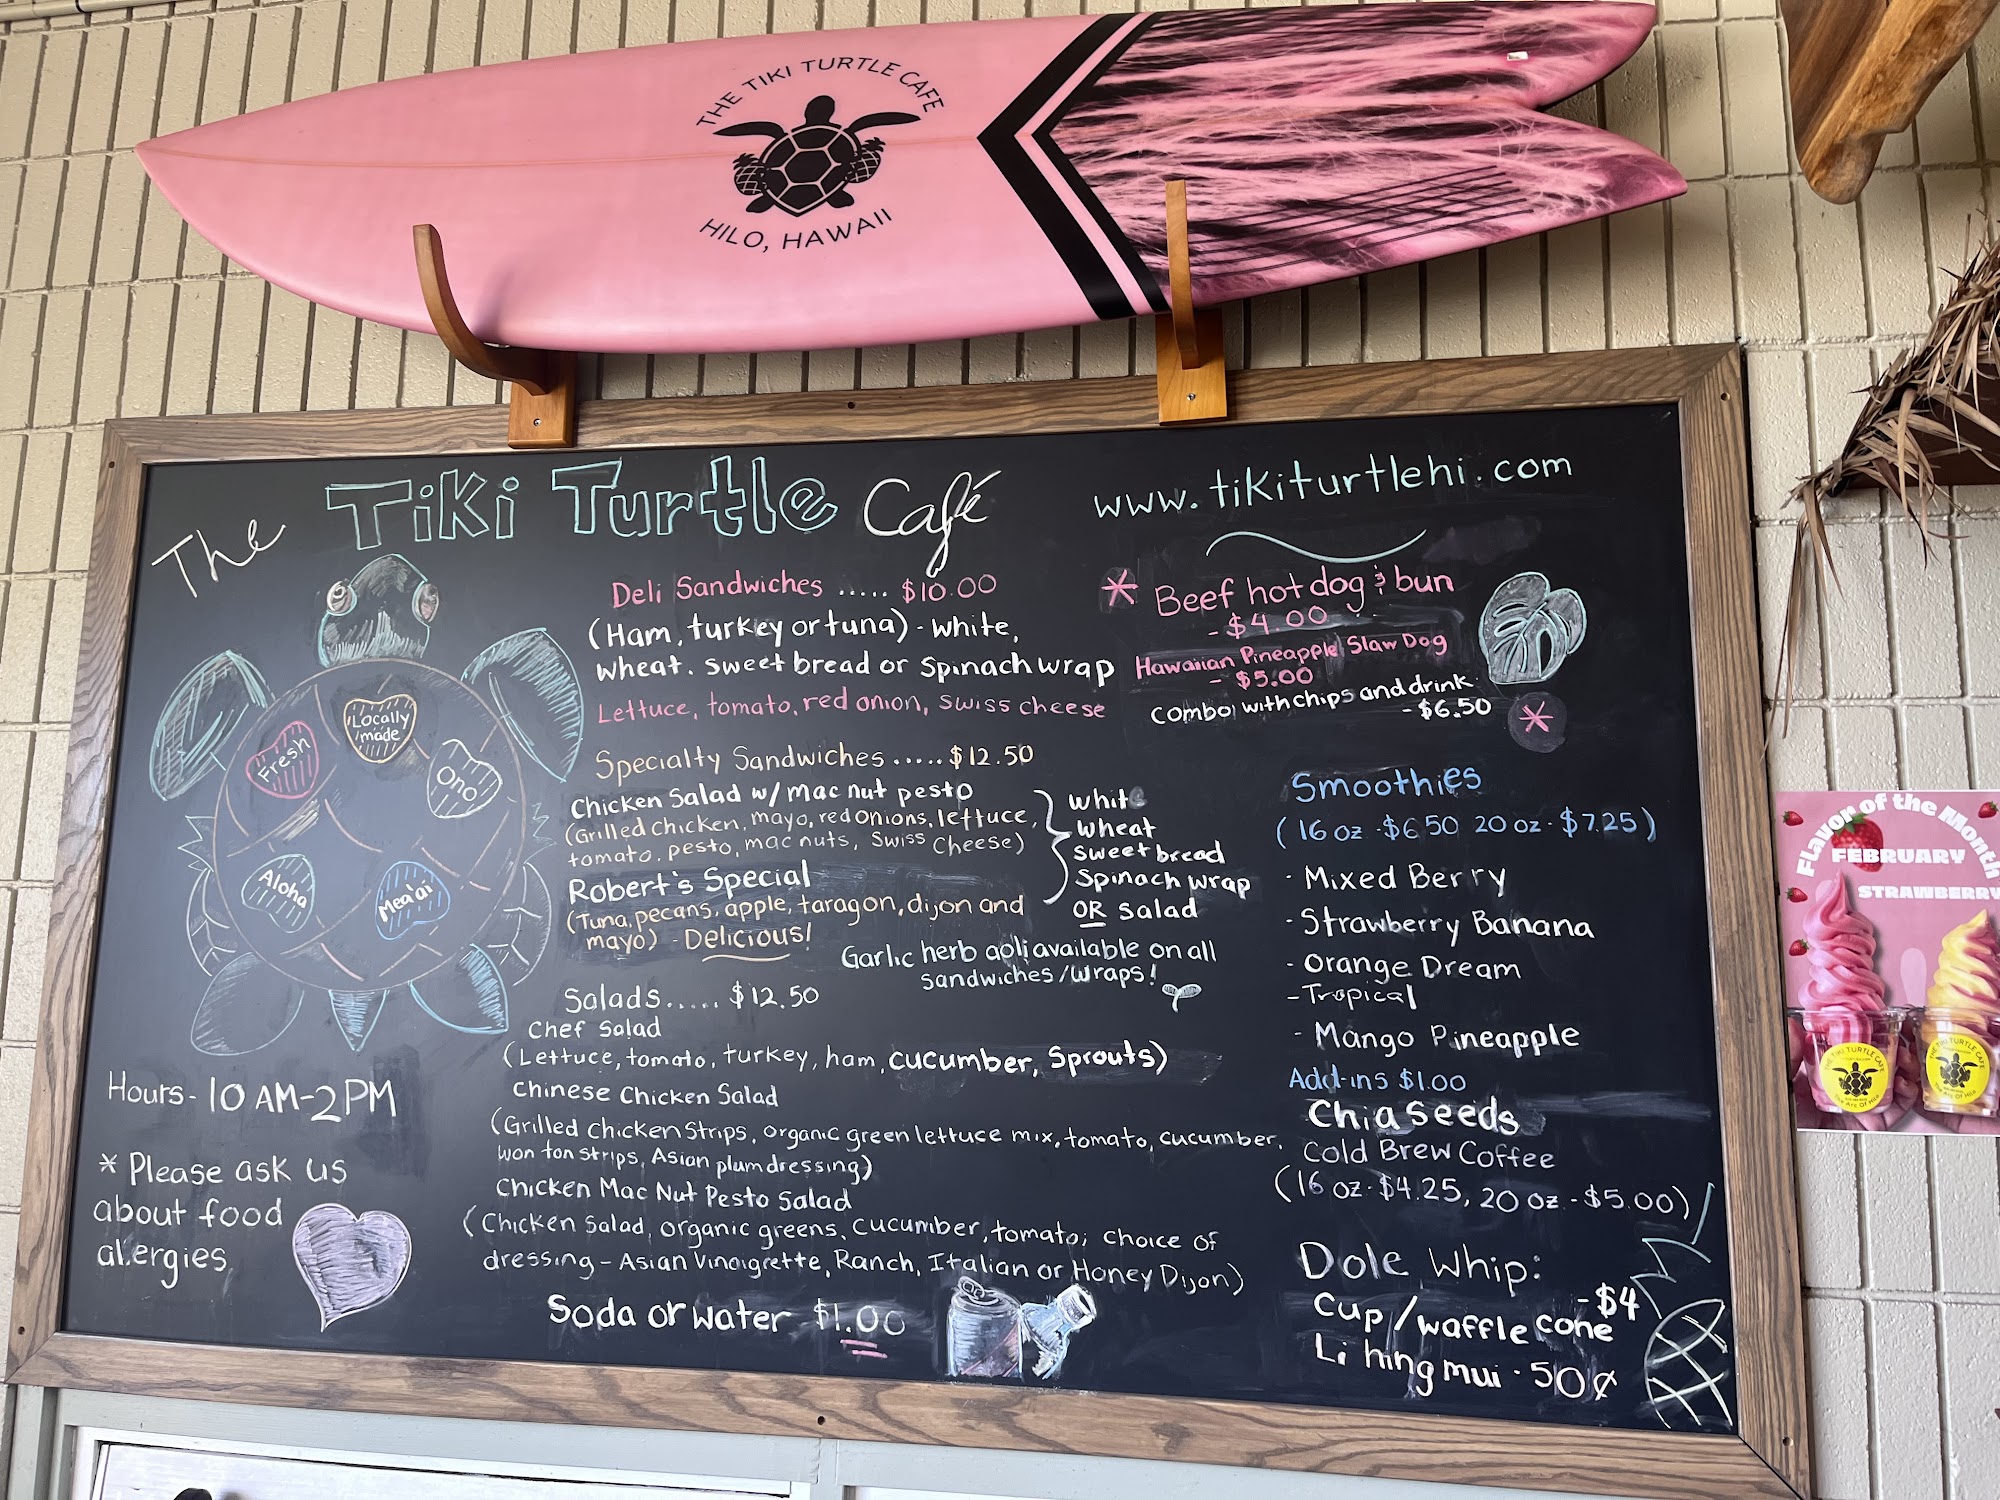 THE TIKI TURTLE CAFE
HILO, HAWAII
The Tiki Turtle Café
www.tikiturtlehi.com
Fresh
Locally
made
Ono
Aloha
Mea'ai
Hours - 10 AM-2PM
* Please ask us
about food
allergies
Deli Sandwiches ..... $10.00
(Ham, turkey or tuna) - white,
wheat. sweet bread or spinach wrap
Lettuce, tomato, red onion, swiss cheese
Specialty Sandwiches ..... $12.50
Chicken Salad w/ mac nut pesto
(Grilled chicken, mayo, red onions, lettuce,
tomato, pesto, mac nuts, Swiss Cheese)
Robert's Special
(Tuna, pecans, apple, taragon, dijon and
mayo) - Delicious!
white
wheat
sweet bread
spinach wrap
OR salad
Garlic herb aoli available on all
sandwiches/wraps!
Salads ..... $12.50
Chef Salad
(Lettuce, tomato, turkey, ham, cucumber, Sprouts)
Chinese Chicken Salad
(Grilled Chicken Strips, organic green lettuce mix, tomato, cucumber,
won ton strips, Asian plum dressing)
Chicken Mac Nut Pesto Salad
(Chicken Salad, organic greens, cucumber, tomato; choice of
dressing - Asian Vinaigrette, Ranch, Italian or Honey Dijon)
Soda or water $1.00
* Beef hot dog & bun
- $4.00
Hawaiian Pineapple Slaw Dog
- $5.00
combo with chips and drink
- $6.50 *
Smoothies
(16 oz - $6.50 20 oz - $7.25)
- Mixed Berry
- Strawberry Banana
- Orange Dream
- Tropical
- Mango Pineapple
Add-ins $1.00
Chia seeds
Cold Brew Coffee
(16 oz - $4.25, 20 oz - $5.00)
Dole Whip:
- $4
Cup/waffle cone
Li hing mui - 50¢
Flavor of the Month
FEBRUARY
STRAWBERRY
THE TIKI TURTLE CAFE
THE TIKI TURTLE CAFE